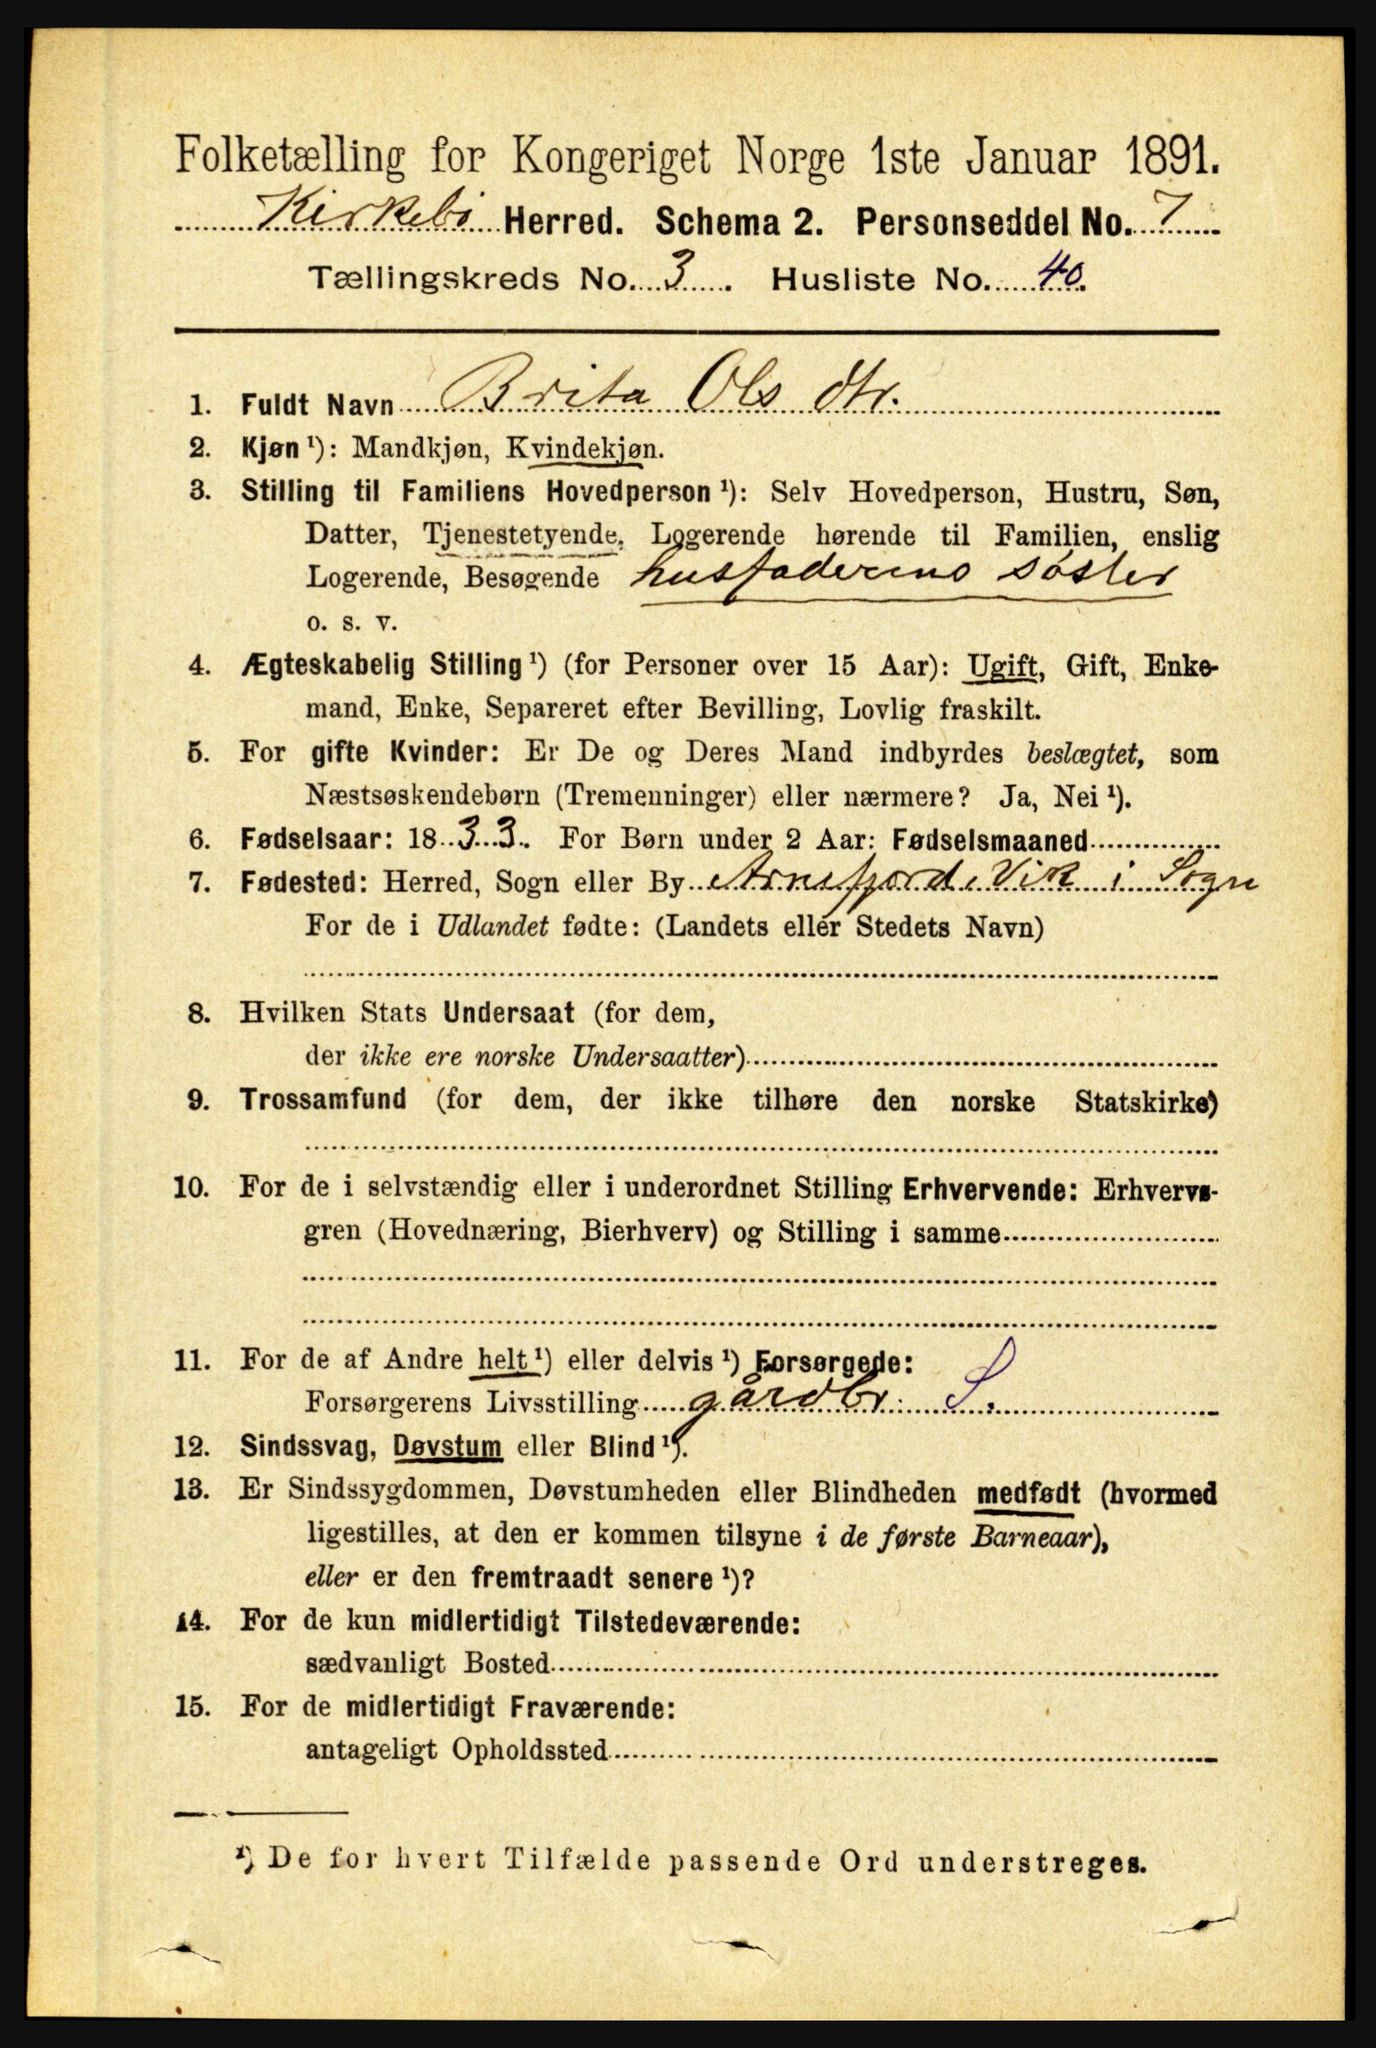 Folketælling for Kongeriget Norge 1ste Januar 1891.
Kirkebø Herred. Schema 2. Personseddel No. 7
Tællingskreds No. 3. Husliste No. 40.
1. Fuldt Navn Brita Ols dtr.
2. Kjøn ¹): Mandkjøn, Kvindekjøn.
3. Stilling til Familiens Hovedperson ¹): Selv Hovedperson, Hustru, Søn,
Datter, Tjenestetyende, Logerende hørende til Familien, enslig
Logerende, Besøgende husfaderens søster
o. s. v.
4. Ægteskabelig Stilling ¹) (for Personer over 15 Aar): Ugift, Gift, Enke-
mand, Enke, Separeret efter Bevilling, Lovlig fraskilt.
5. For gifte Kvinder: Er De og Deres Mand indbyrdes beslægtet, som
Næstsøskendebørn (Tremenninger) eller nærmere? Ja, Nei ¹).
6. Fødselsaar: 1833. For Børn under 2 Aar: Fødselsmaaned
7. Fødested: Herred, Sogn eller By Arnefjord, Vik i Sogn
For de i Udlandet fødte: (Landets eller Stedets Navn)
8. Hvilken Stats Undersaat (for dem,
der ikke ere norske Undersaatter)
9. Trossamfund (for dem, der ikke tilhøre den norske Statskirke)
10. For de i selvstændig eller i underordnet Stilling Erhvervende: Erhvervs-
gren (Hovednæring, Bierhverv) og Stilling i samme
11. For de af Andre helt ¹) eller delvis ¹) Forsørgede:
Forsørgerens Livsstilling gårdbr. S.
12. Sindssvag, Døvstum eller Blind ¹).
13. Er Sindssygdommen, Døvstumheden eller Blindheden medfødt (hvormed
ligestilles, at den er kommen tilsyne i de første Barneaar),
eller er den fremtraadt senere ¹)?
14. For de kun midlertidigt Tilstedeværende:
sædvanligt Bosted
15. For de midlertidigt Fraværende:
antageligt Opholdssted
¹) De for hvert Tilfælde passende Ord understreges.